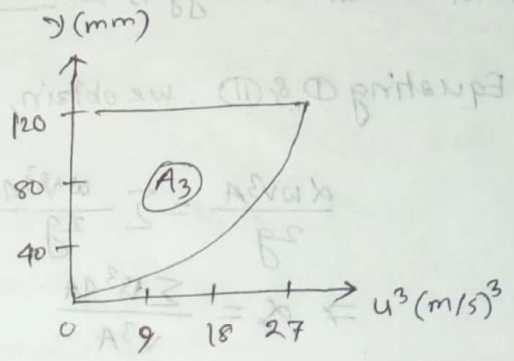 y (mm)
120
80
A3
40
0 9 18 27
u³ (m/s)³